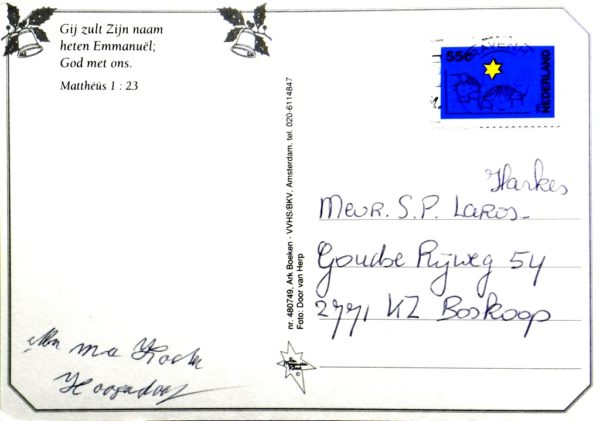 Gij zult Zijn naam
heten Emmanuël;
God met ons.
Matthéüs 1 : 23
55c
NEDERLAND
nr. 480749, Ark Boeken - VVHS/BKV, Amsterdam, tel. 020-6114847
Foto: Door van Herp
Harkes
Mevr. S.P. Laros-
Goudse Rijweg 54
2771 KZ Boskoop